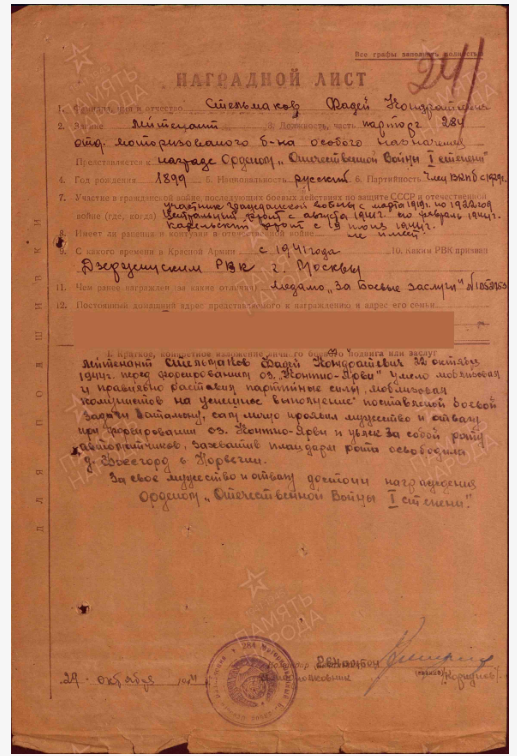 Все графы заполнять полностью
241
НАГРАДНОЙ ЛИСТ
1. Фамилия, имя и отчество Стельмаков Фадей Кондратьевич
2. Звание лейтенант 3. Должность, часть парторг 284
отд. моторизованого б-на особого назначения
Представляется к награде Орденом „Отечественной Войны I степени"
4. Год рождения 1899 5. Национальность русский 6. Партийность Член ВКП(б) с 1929г.
7. Участие в гражданской войне, последующих боевых действиях по защите СССР и отечественной
участник Гражданской войны с марта 1919г. по 1922 год
войне (где, когда) Центральный фронт с августа 1941г. по февраль 1944г.
Карельский фронт с 19 июня 1944г.
8. Имеет ли ранения и контузии в отечественной войне не имеет
9. С какого времени в Красной Армии с 1941 года 10. Каким РВК призван
Дзержинским РВК г. Москвы
11. Чем ранее награжден (за какие отличия) Медаль „За Боевые заслуги" №
12. Постоянный домашний адрес представляемого к награждению и адрес его семьи
I. Краткое, конкретное изложение личного боевого подвига или заслуг
Лейтенант Стельмаков Фадей Кондратьевич 22 октября
1944г. перед форсированием оз. „Контио-Ярви" умело мобилизовал
и правильно расставил партийные силы, мобилизовал
коммунистов на успешное выполнение поставленной боевой
задачи батальону, сам лично проявил мужество и отвагу
при форсировании оз. Контио-Ярви и увлек за собой роту
автоматчиков, захватив плацдарм рота освободила
д. в Норвегии.
За свое мужество и отвагу достоин награждения
Орденом „Отечественной Войны I степени".
29 октября 1944
ДЛЯ ПОДШИВКИ
ПАМЯТЬ НАРОДА